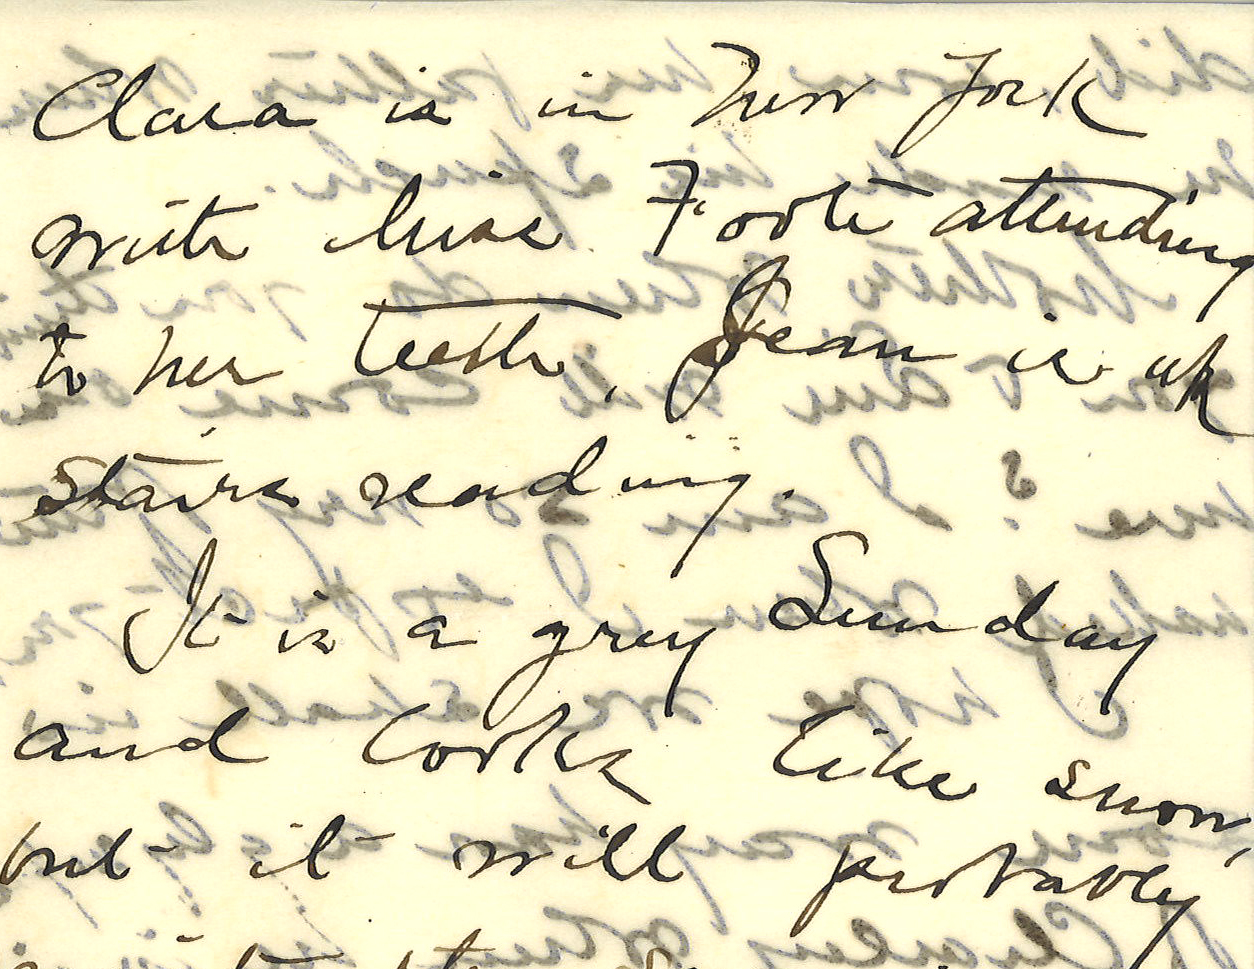 Clara is in New York
with Miss Foote attending
to her teeth. Jean is up
stairs reading.
It is a grey Sunday
and looks like snow
but it will probably